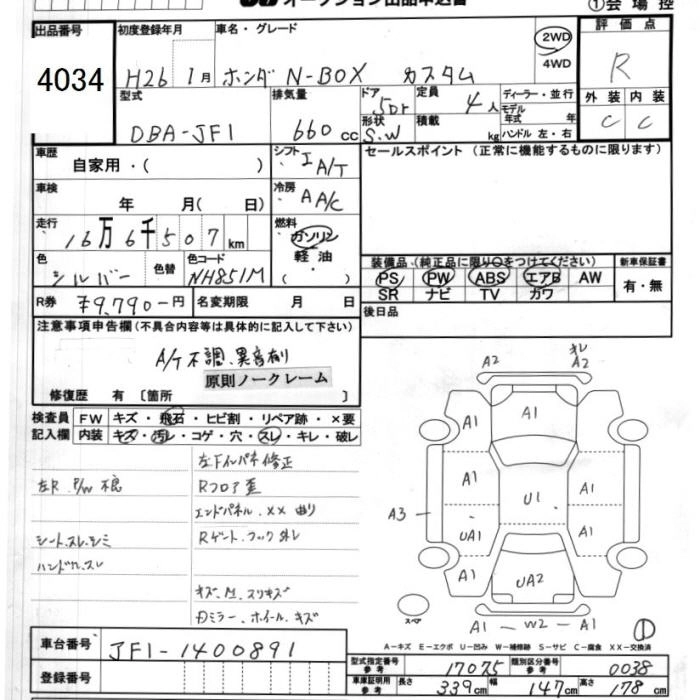 オークション出品申込書
①会場控
出品番号 4034
初度登録年月 H26 1月
車名・グレード ホンダ N-BOX カスタム
2WD
4WD
評価点 R
外装 C 内装 C
型式 DBA-JF1
排気量 660cc
ドア 5Dr
形状 S.W
定員 4人
積載 kg
ディーラー・並行
モデル年式 年式
ハンドル 左・右
車歴 自家用・( )
シフト I A/T
セールスポイント (正常に機能するものに限ります)
車検 年 月( 日)
冷房 A A/C
走行 16万6千507km
燃料 ガソリン
軽油
・( )
色 シルバー 色替 色コード NH851M
装備品(純正品に限り○をつけてください)
新車保証書
PS PW ABS エアB AW
SR ナビ TV カワ
有・無
R券 ¥9,790-円 名変期限 月 日
後日品
注意事項申告欄(不具合内容等は具体的に記入して下さい)
A/T不調、異音有り
原則ノークレーム
修復歴 有 〔箇所 〕
検査員記入欄 FW キズ・飛石・ヒビ割・リペア跡・×要
内装 キズ・汚レ・コゲ・穴・スレ・キレ・破レ
左Fインパネ修正
左R P/W不良
Rフロア歪
エンドパネル××曲り
シート、スレ、シミ
Rゲート、フック外レ
ハンドル、スレ
キズ、凹、スリキズ
Dミラー、ホイール、キズ
A2
オレ
A2
A1
A1 A1
A1 A1
U1
A3
UA1 A1
A1 A1
UA2
スペア
A1 - W2 - A1
①
A-キズ E-エクボ U-凹み W-補修跡 S-サビ C-腐食 XX-交換済
車台番号 JF1-1400891
登録番号
型式指定番号 参考 17075
類別区分番号 参考 0038
車庫証明用 参考 長さ 339cm 幅 147cm 高さ 178cm